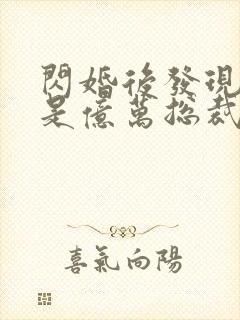 閃婚後發現
是億萬總裁
喜氣向陽